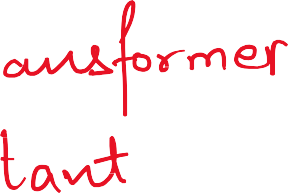 ansformer
tant